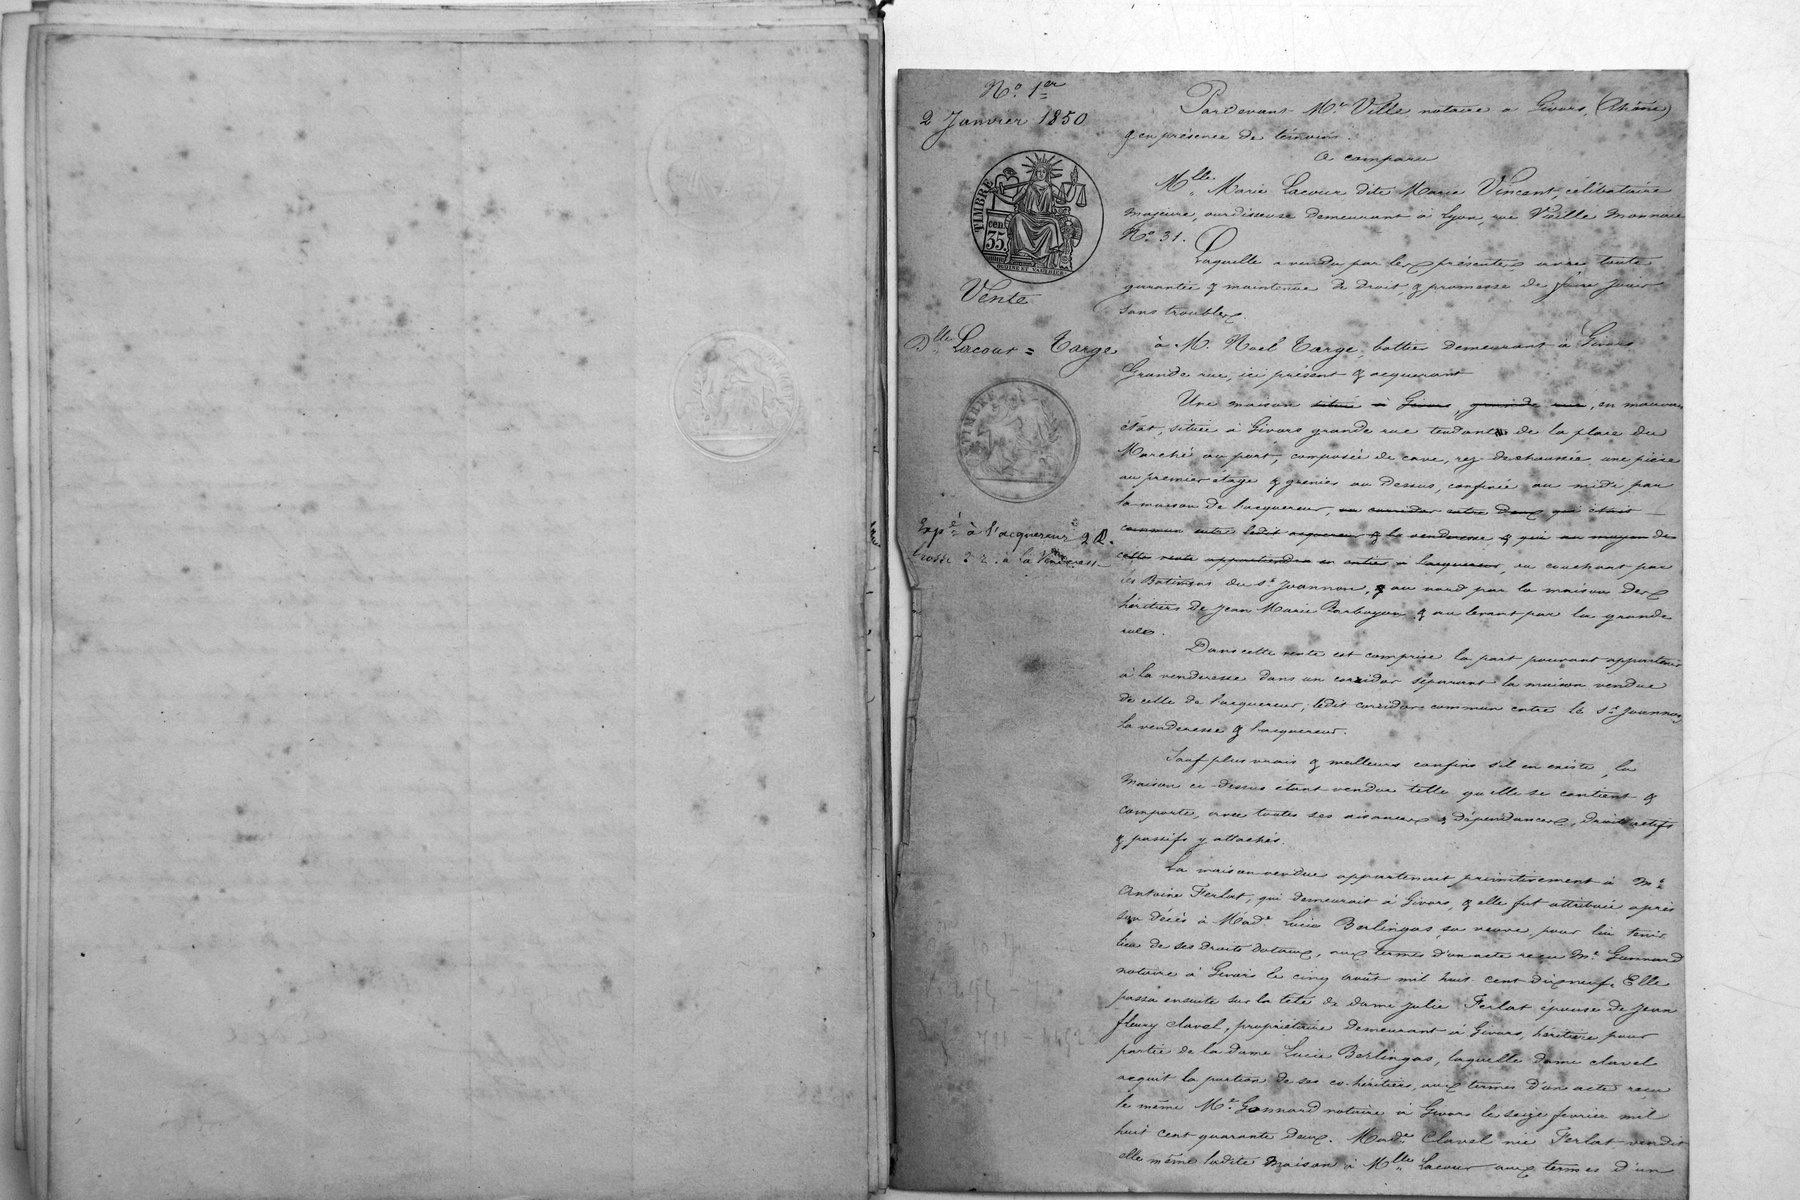 N.° 1er
2 Janvier 1850
TIMBRE
cen.
35.
Vente
Dlle Lacour = Targe
TIMBRE
Expé à l'acquereur 2 R.
Grosse à la Venderesse
Pardevant Me Ville notaire a Givors, (Rhône)
& en présence de témoins.
A comparu
Mlle Marie Lacour dite Marie Vincent, célibataire
majeure, ourdisseuse demeurant à Lyon, rue Vieille monnaie
N.° 31.
Laquelle a vendu par les présentes avec toute
garantie & maintenue de droit, & promesse de faire jouir
sans troubles.
à M. Noel Targe, bottier demeurant a Givors
Grande rue, ici présent & acquerant
Une maison située à Givors, grande rue, en mauvais
état, située à Givors grande rue tendant de la place du
Marché au port, composée de cave, rez-dechaussée, une pièce
au premier étage & grenier au dessus, confinée au midi par
la maison de l'acquereur, un corridor entre deux qui était
commun entre ledit acquereur & la venderesse & qui au moyen de
cette vente appartiendra en entier à l'acquereur, au couchant par
les Batimens du sr Joannon, & au nord par la maison des
héritiers de Jean Marie Barbayon & au levant par la grande
rue.
Dans cette vente est comprise la part pouvant appartenir
à la venderesse dans un corridor séparant la maison vendue
de celle de l'acquereur; ledit corridor commun entre le sr Joannon,
la venderesse & l'acquereur.
Sauf plus vrais & meilleurs confins s'il en existe, la
maison ci-dessus étant vendue telle qu'elle se contient &
comporte, avec toutes ses aisances & dépendances, droits actifs
& passifs y attachés.
La maison vendue appartenait primitivement à Mr
Antoine Ferlat, qui demeurait à Givors, & elle fut attribuée après
son décès à Made Lucie Berlingas, sa veuve, pour lui tenir
lieu de ses droits dotaux, aux termes d'un acte reçu Me Gonnard
notaire à Givors le cinq août mil huit cent dixneuf. Elle
passa ensuite sur la tête de dame Julie Ferlat épouse de Jean
fleury Clavel, propriétaire demeurant à Givors, héritière pour
partie de la dame Lucie Berlingas, laquelle dame clavel
acquit la portion de ses co-héritiers, aux termes d'un acte reçu
le même Me Gonnard notaire à Givors le seize fevrier mil
huit cent quarante deux. Made Clavel née Ferlat vendit
elle même ladite maison à Mlle Lacour aux termes d'un